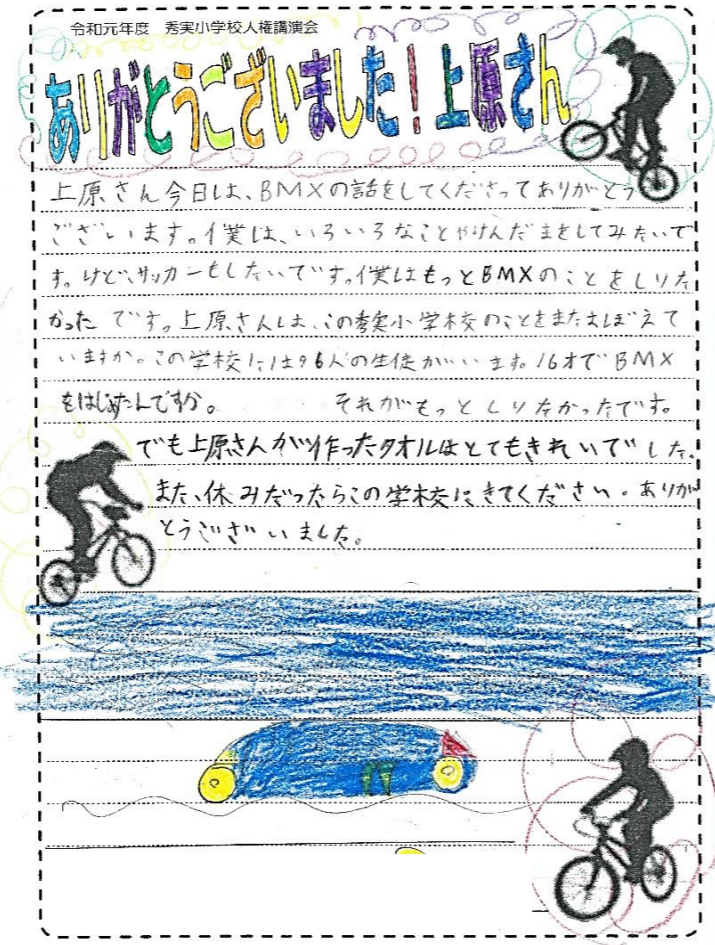 令和元年度　秀実小学校人権講演会
ありがとうございました！上原さん
上原さん今日は、BMXの話をしてくださってありがとう
ございます。僕は、いろいろなことやけんだまをしてみたいで
す。けど、サッカーもしたいです。僕はもっとBMXのことをしりた
かったです。上原さんは、この秀実小学校のことをまだおぼえて
いますか。この学校には96人の生徒がいます。16才でBMX
をはじめたんですか。　それがもっとしりたかったです。
でも上原さんが作ったタオルはとてもきれいでした。
また、休みだったらこの学校にきてください。ありが
とうございました。